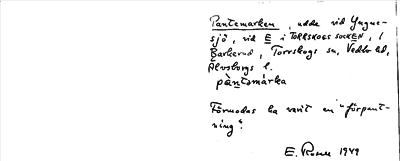 Pantemarken, udde vid Yngne-
sjö, vid E i TORRSKOGS SOCKEN, i
Bärkerud, Torrskogs sn, Vedbo hd,
Älvsborgs l.
pàntemárka
Förmodas ha varit en "förpant-
ning".
E. Rosell 1949